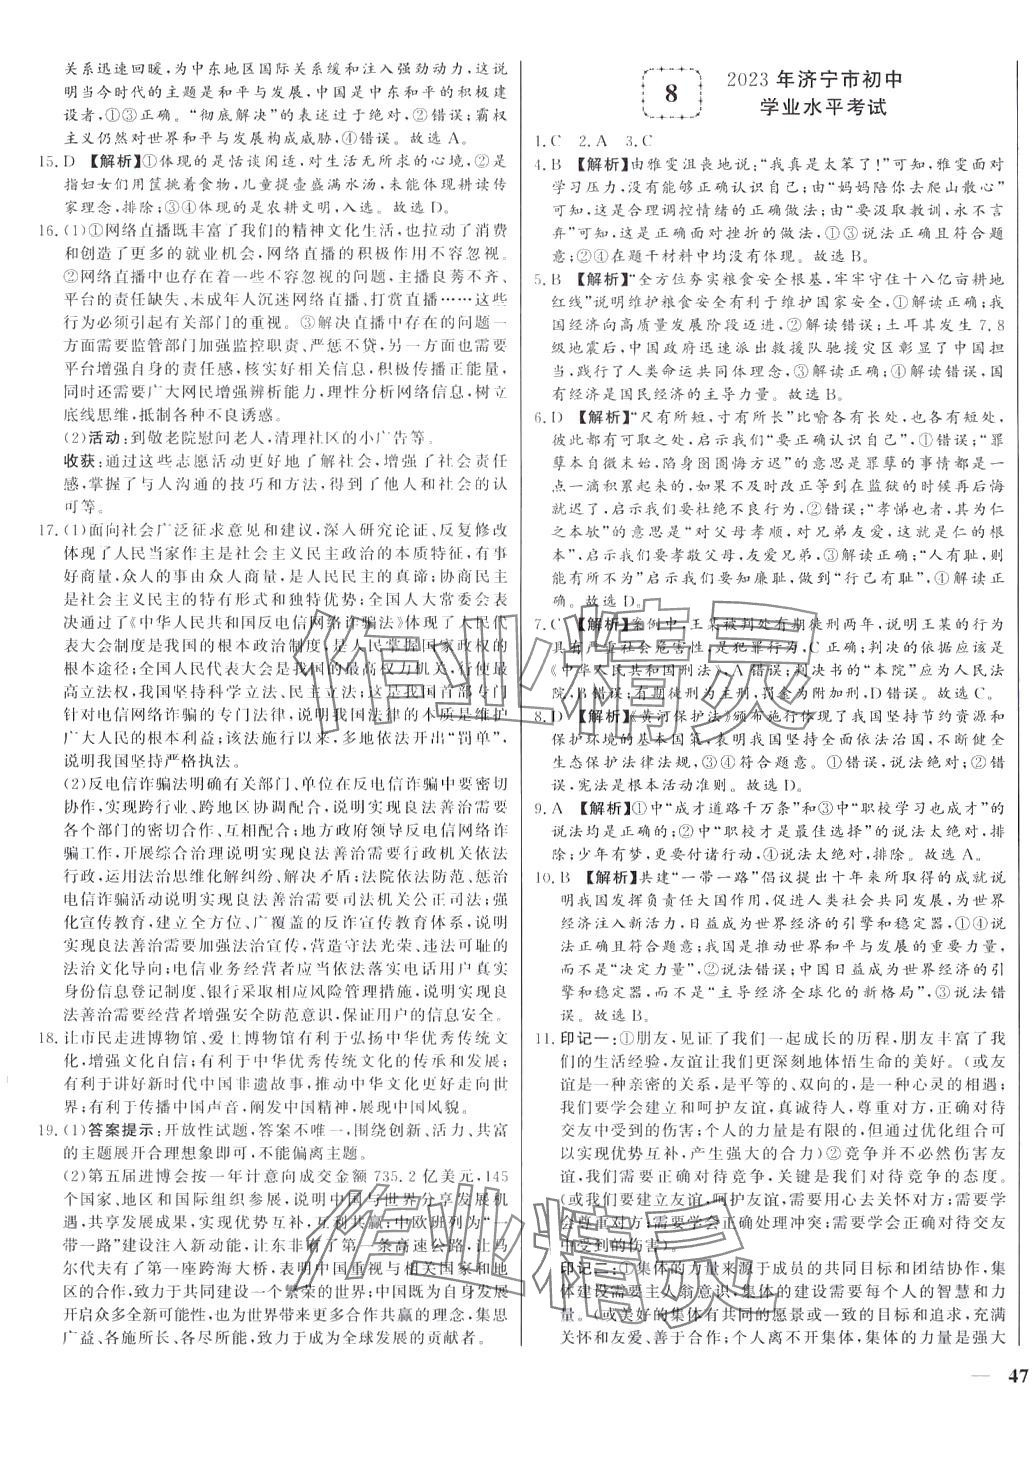 关系迅速回暖，为中东地区国际关系缓和注入强劲动力。这说
明当今时代的主题是和平与发展，中国是中东和平的积极建
设者，①③正确。“彻底解决”的表述过于绝对，②错误；霸权
主义仍然对世界和平与发展构成威胁，④错误。故选A。
15. D 【解析】①体现的是恬淡闲适，对生活无所求的心境，②是
指妇女们用筐挑着食物，儿童提壶盛满水汤，未能体现耕读传
家理念，排除；③④体现的是农耕文明，入选。故选D。
16. (1)①网络直播既丰富了我们的精神文化生活，也拉动了消费
和创造了更多的就业机会，网络直播的积极作用不容忽视。
②网络直播中存在着一些不容忽视的问题，主播良莠不齐、
平台的责任缺失、未成年人沉迷网络直播、打赏直播……这些
行为必须引起有关部门的重视。③解决直播中存在的问题一
方面需要监管部门加强监控职责、严惩不贷，另一方面要求各
平台增强自身的责任感，核实好相关信息，积极传播正能量，
同时还需要广大网民增强辨析能力，理性分析网络信息，树立
底线思维，抵制各种不良诱惑。
(2)活动：到敬老院慰问老人，清理社区的小广告等。
收获：通过这些志愿活动更好地了解社会，增强了社会责任
感，掌握了与人沟通的技巧和方法，得到了他人和社会的认
可等。
17. (1)面向社会广泛征求意见和建议，深入研究论证、反复修改
体现了人民当家作主是社会主义民主政治的本质特征，有事
好商量，众人的事由众人商量，是人民民主的真谛；协商民主
是社会主义民主的特有形式和独特优势；全国人大常委会表
决通过了《中华人民共和国反电信网络诈骗法》体现了人民代
表大会制度是我国的根本政治制度，是人民掌握国家政权的
根本途径；全国人民代表大会是我国的最高权力机关，行使最
高立法权，我国坚持科学立法、民主立法；这是我国首部专门
针对电信网络诈骗的专门法律，说明我国法律的本质是维护
广大人民的根本利益；该法施行以来，多地依法开出“罚单”，
说明我国坚持严格执法。
(2)反电信诈骗法明确有关部门、单位在反电信诈骗中要密切
协作，实现跨行业、跨地区协调配合，说明实现良法善治需要
各个部门的密切合作、互相配合；地方政府领导反电信网络诈
骗工作，开展综合治理说明实现良法善治需要行政机关依法
行政，运用法治思维化解纠纷、解决矛盾；法院依法防范、惩治
电信诈骗活动说明实现良法善治需要司法机关公正司法；强
化宣传教育，建立全方位、广覆盖的反诈宣传教育体系，说明
实现良法善治需要加强法治宣传，营造守法光荣、违法可耻的
法治文化导向；电信业务经营者应当依法落实电话用户真实
身份信息登记制度、银行采取相应风险管理措施，说明实现良
法善治需要经营者增强安全防范意识，保证用户的信息安全。
18. 让市民走进博物馆，爱上博物馆有利于弘扬中华优秀传统文
化，增强文化自信；有利于中华优秀传统文化的传承和发展；
有利于讲好新时代中国非遗故事，推动中华文化更好走向世
界；有利于传播中国声音，阐发中国精神，展现中国风貌。
19. (1)答案提示：开放性试题，答案不唯一，围绕创新、活力、共富
的主题展开合理想象即可，不能偏离主题。
(2)第五届进博会按一年计意向成交金额735.2亿美元，145
个国家、地区和国际组织参展，说明中国与世界分享发展机遇，
共享发展成果，实现优势互补，互利共赢；中欧班列为“一
带一路”建设注入新动能，让东非有了第一条高速公路，让马
尔代夫有了第一座跨海大桥，表明中国重视与相关国家和地
区的共享，致力于共同建设一个繁荣的世界；中国既为自身发展
开启众多全新可能性，也为世界带来许多合作共赢的理念，集思
广益、各施所长、各尽所能，致力于成为全球发展的贡献者。
8
2023年济宁市初中
学业水平考试
1. C 2. A 3. C
4. B 【解析】由雅雯沮丧地说：“我真是太笨了！”可知，雅雯面对
学习压力，没有能够正确认识自己；由“妈妈陪你去爬山散心”
可知，这是合理调控情绪的正确做法；由“要汲取教训，永不言
弃”可知，这是正确面对挫折的做法，①③说法正确且符合题
意；②④在题干材料中均没有体现。故选B。
5. B 【解析】“全方位夯实粮食安全根基，牢牢守住十八亿亩耕地
红线”说明维护粮食安全有利于维护国家安全，①解读正确；我
国经济向高质量发展阶段迈进，②解读错误；土耳其发生7.8
级地震后，中国政府迅速派出救援队驰援灾区彰显了中国担
当，践行了人类命运共同体理念，③解读正确；④解读错误，国
有经济是国民经济的主导力量。故选B。
6. D 【解析】“尺有所短，寸有所长”比喻各有长处，也各有短处，
彼此都有可取之处，启示我们“要正确认识自己”，①错误；“罪
孽本自微末始，陷身囹圄悔方迟”的意思是罪孽的事情都是一
点一滴积累起来的，如果不及时改正等到在监狱的时候再后悔
就迟了，启示我们要杜绝不良行为，②错误；“孝悌也者，其为仁
之本欤”的意思是“对父母孝顺，对兄弟友爱，这就是仁的根
本”，启示我们要孝敬父母，友爱兄弟，③解读正确；“人有耻，则
能有所不为”启示我们要知廉耻，做到“行己有耻”，④解读正
确。故选D。
7. C 【解析】案例中，王某被判处有期徒刑两年，说明王某的行为
具有严重社会危害性，是犯罪行为，C正确；判决的依据应该是
《中华人民共和国刑法》，A错误；判决书的“本院”应为人民法
院，B错误；有期徒刑为主刑，罚金为附加刑，D错误。故选C。
8. D 【解析】《黄河保护法》颁布施行体现了我国坚持节约资源和
保护环境的基本国策，表明我国坚持全面依法治国，不断健全
生态保护法律法规，③④符合题意。①说法错误；②中说法错
误，宪法是根本活动准则。故选D。
9. A 【解析】①中“成才道路千万条”和③中“职校学习也成才”的
说法均是正确的；②中“职校才是最佳选择”的说法太绝对，排
除；少年有梦，更要付诸行动，④说法太绝对，排除。故选A。
10. B 【解析】共建“一带一路”倡议提出十年来所取得的成就说
明我国发挥负责任大国作用，促进人类社会共同发展，为世界
经济注入新活力，日益成为世界经济的引擎和稳定器，①④说
法正确且符合题意；我国是推动世界和平与发展的重要力量，
而不是“决定力量”，②说法错误；中国日益成为世界经济的引
擎和稳定器，而不是“主导经济全球化的新格局”，③说法错
误。故选B。
11. 印记一：①朋友，见证了我们一起成长的历程，朋友丰富了我
们的生活经验，友谊让我们更深刻地体悟生命的美好。（或友
谊是一种亲密的关系，是平等的、双向的，是一种心灵的相遇；
我们要学会建立和呵护友谊，真诚待人，尊重对方，正确对待
交友中受到的伤害；个人的力量是有限的，但通过优化组合可
以实现优势互补，产生强大的合力）②竞争并不必然伤害友
谊，我们要学会正确对待竞争，关键是我们对待竞争的态度。
（或我们要建立友谊，呵护友谊；需要用心去关怀对方；需要学
会尊重对方；需要学会正确处理冲突；需要学会正确对待交友
中受到的伤害）。
印记二：①集体的力量来源于成员的共同目标和团结协作，集
体建设需要主人翁意识，集体的建设需要每个人的智慧和力
量。（或美好的集体有共同的愿景或一致的目标和追求，充满
关怀和友爱、善于合作；个人离不开集体，集体的力量是强大
— 47
作业精灵
作业精灵